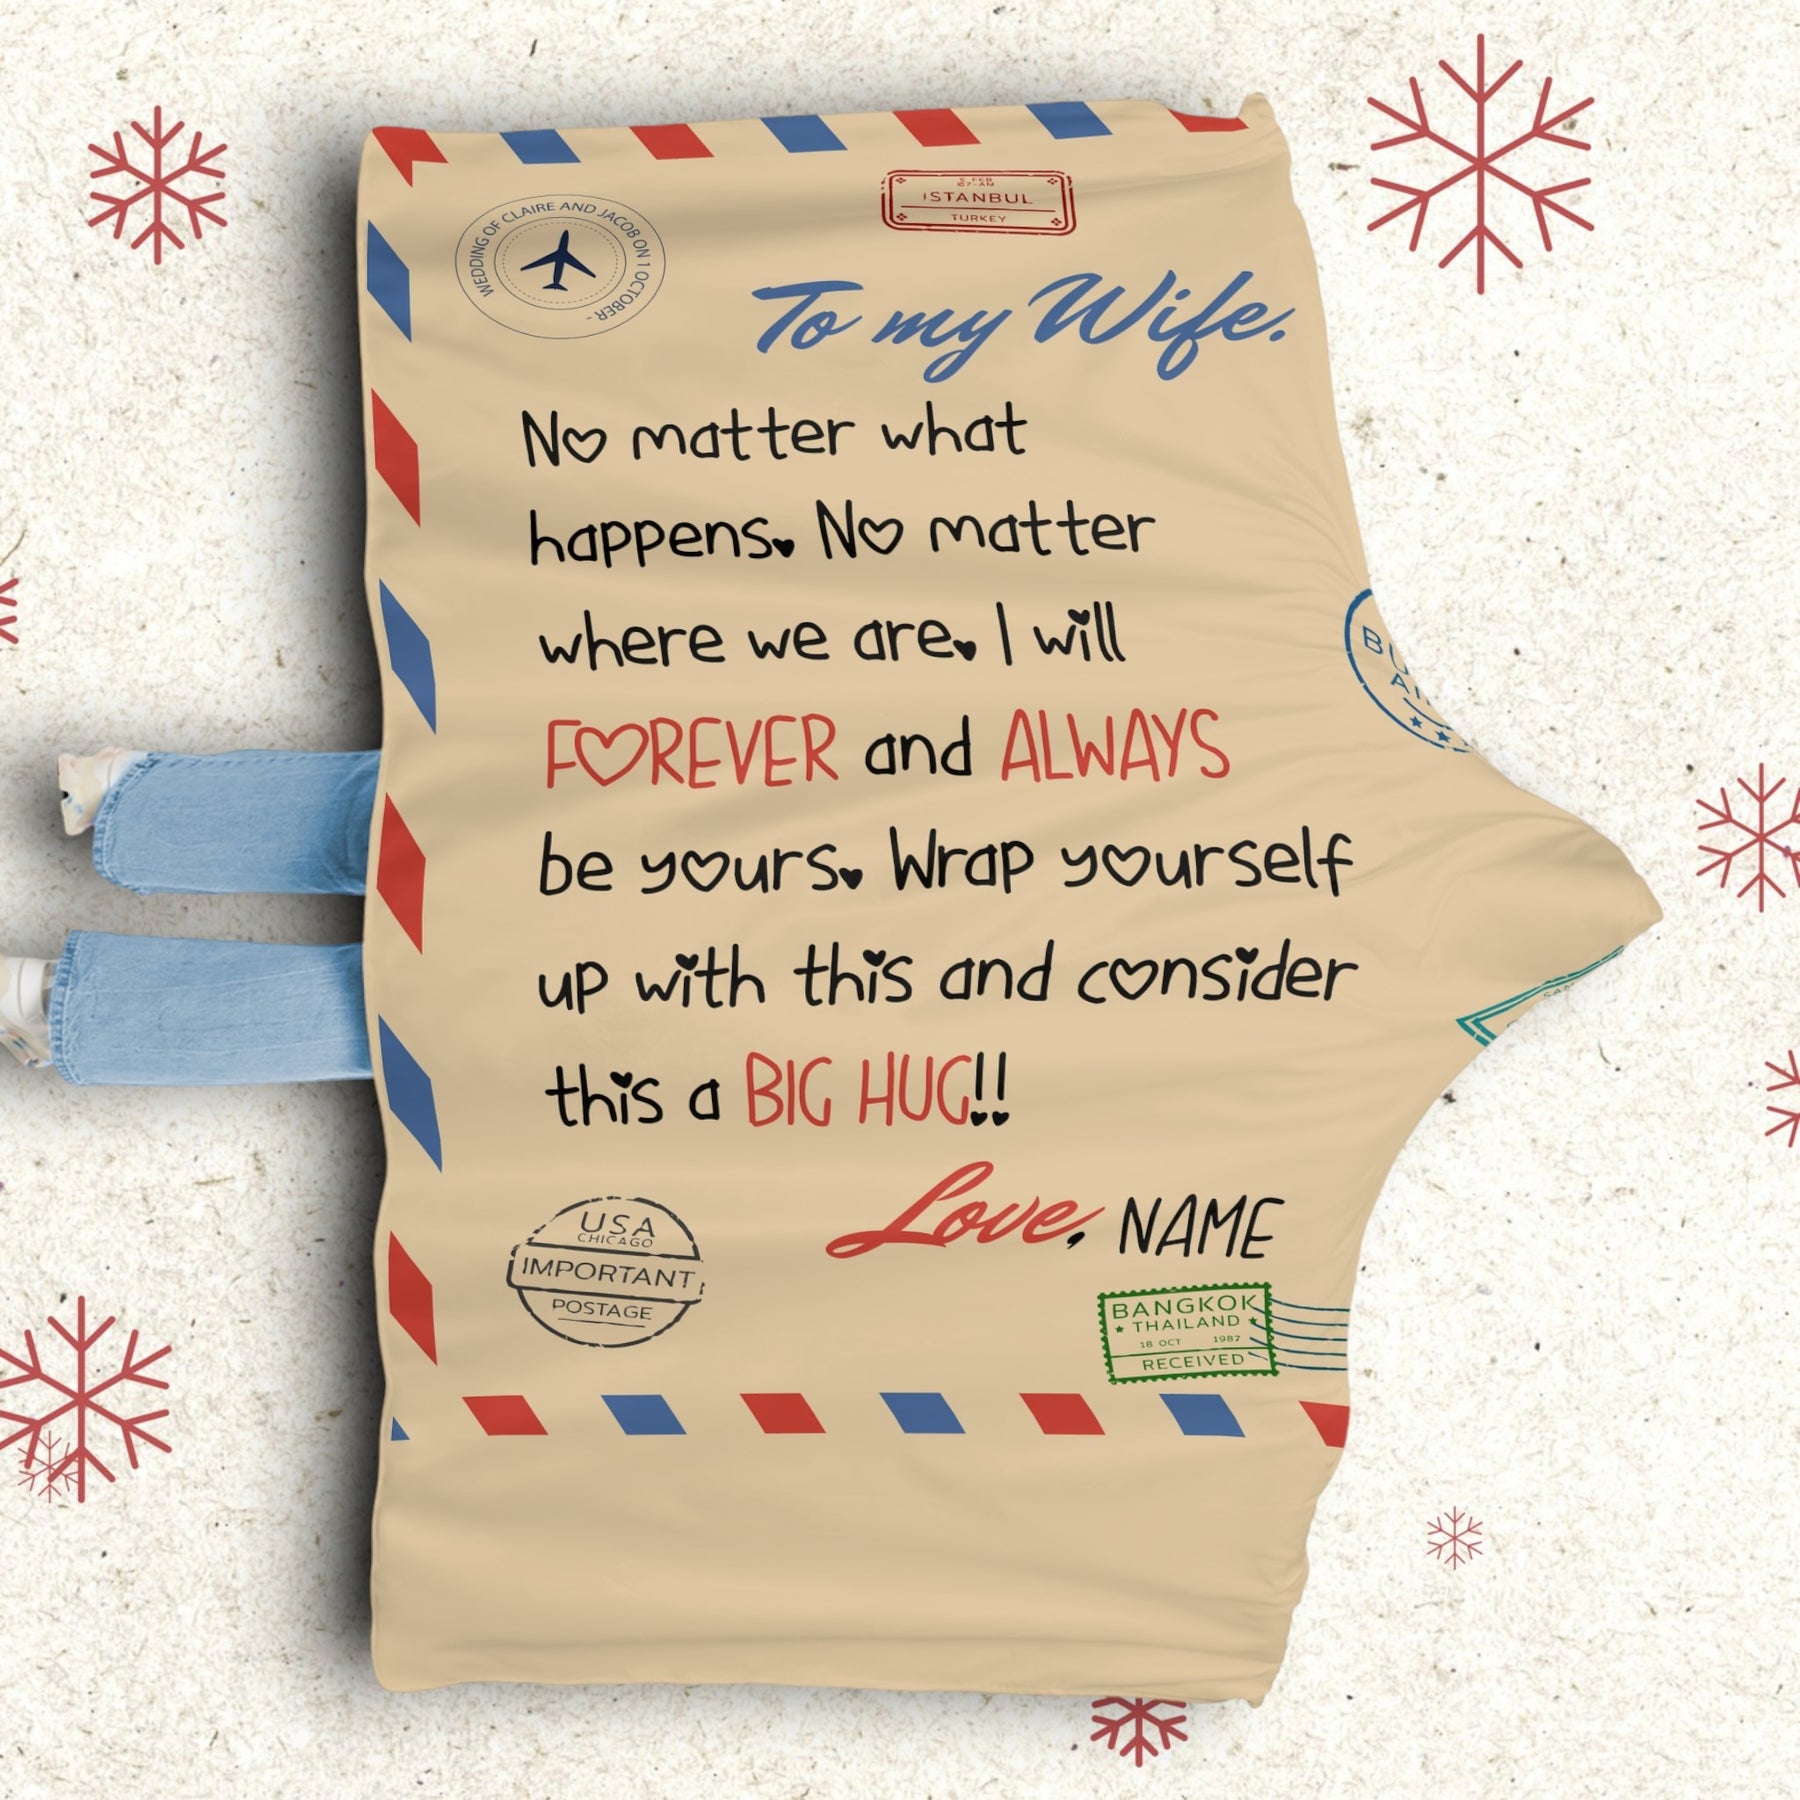 WEDDING OF CLAIRE AND JACOB ON 1 OCTOBER -
5 FEB
07-AM
ISTANBUL
TURKEY
To my Wife.
No matter what
happens. No matter
where we are. I will
FOREVER and ALWAYS
be yours. Wrap yourself
up with this and consider
this a BIG HUG!!
Love, NAME
USA
CHICAGO
IMPORTANT
POSTAGE
BANGKOK
THAILAND
18 OCT 1987
RECEIVED